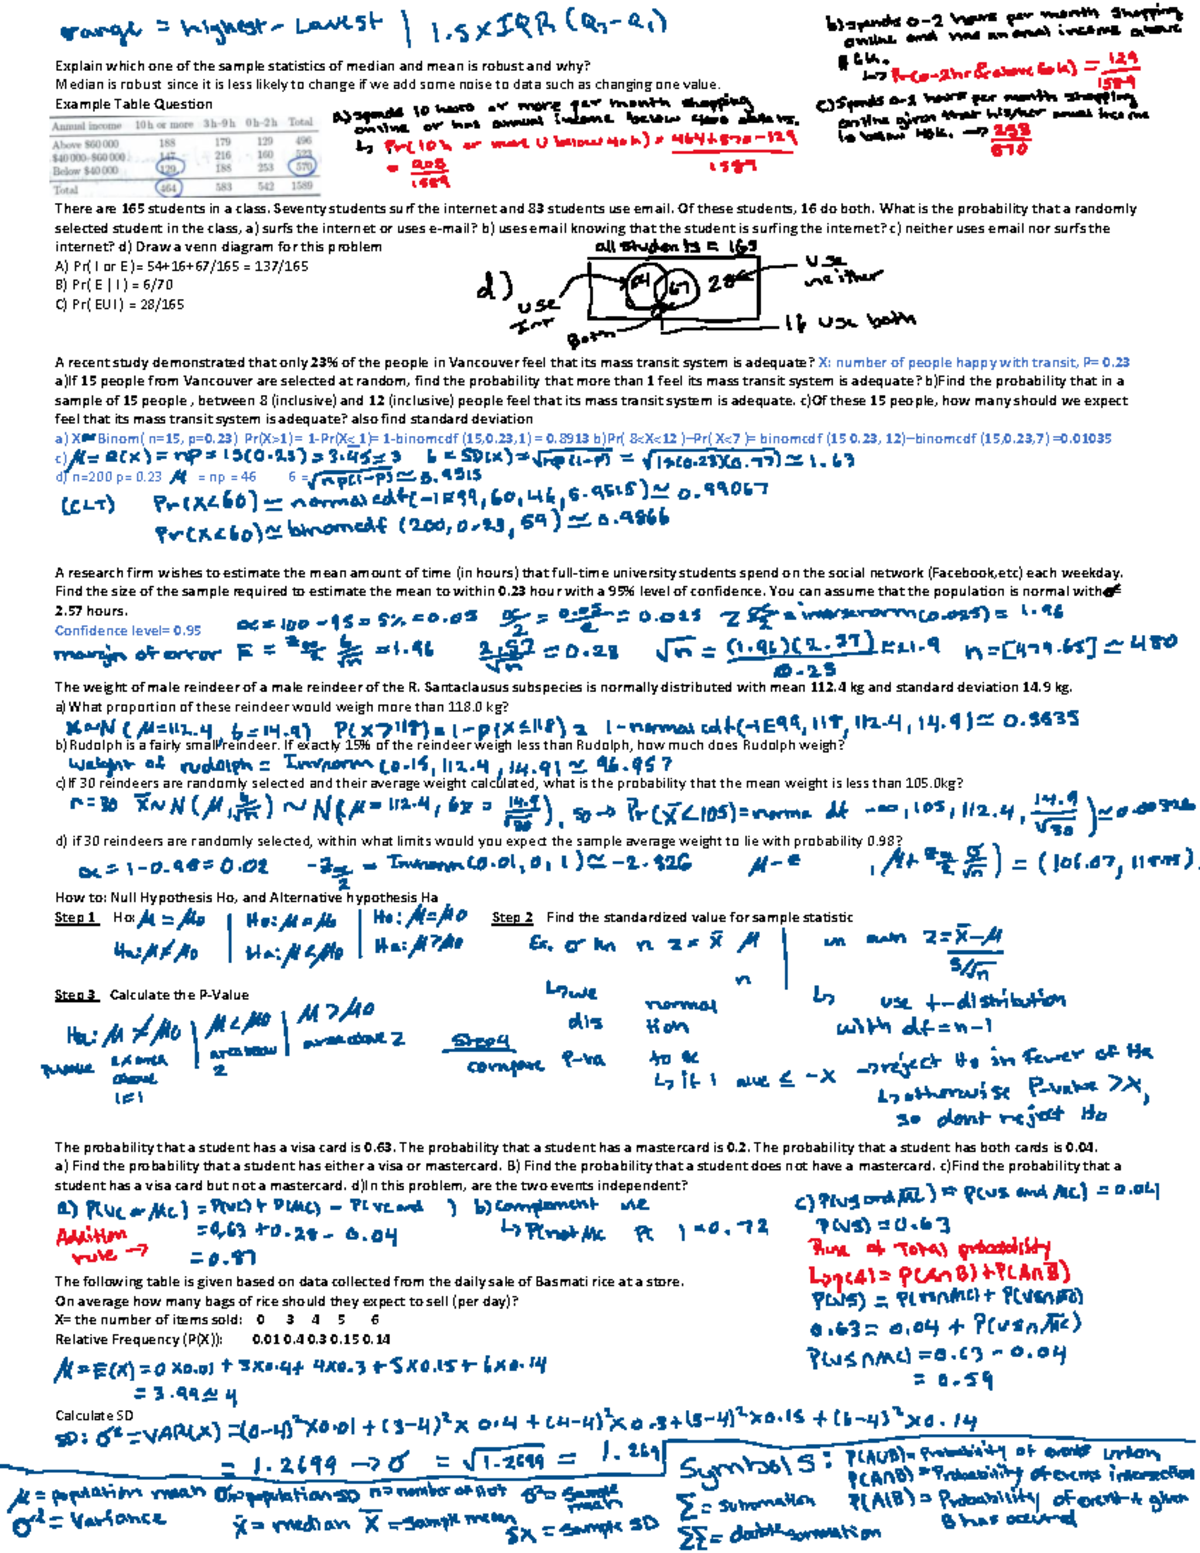 range = highest - Lowest | 1.5 X IQR (Q3 - Q1)
b) spends 0-2 hours per month shopping
online and has an annual income above
$60k.
↳ Pr(0-2hr & above 60k) = 129/1589
Explain which one of the sample statistics of median and mean is robust and why?
Median is robust since it is less likely to change if we add some noise to data such as changing one value.
Example Table Question
A) spends 10 hours or more per month shopping
online or has annual income below
↳ Pr(10h or more U below 40k) = 464+570-129/1589
= 905/1589
C) Spends 0-2 hours per month shopping
online given that his/her annual income
is below 40k. → 253/570
Annual income 10h or more 3h-9h 0h-2h Total
Above $60 000 188 179 129 496
$40 000-$60 000 147 216 160 523
Below $40 000 129 188 253 570
Total 464 583 542 1589
There are 165 students in a class. Seventy students surf the internet and 83 students use email. Of these students, 16 do both. What is the probability that a randomly
selected student in the class, a) surfs the internet or uses e-mail? b) uses email knowing that the student is surfing the internet? c) neither uses email nor surfs the
internet? d) Draw a venn diagram for this problem
A) Pr( I or E )= 54+16+67/165 = 137/165
B) Pr( E | I ) = 6/70
C) Pr( EU I ) = 28/165
all students = 165
d) use Int
54 67 28
use neither
Both
16 use both
A recent study demonstrated that only 23% of the people in Vancouver feel that its mass transit system is adequate? X: number of people happy with transit, P= 0.23
a)If 15 people from Vancouver are selected at random, find the probability that more than 1 feel its mass transit system is adequate? b)Find the probability that in a
sample of 15 people , between 8 (inclusive) and 12 (inclusive) people feel that its mass transit system is adequate. c)Of these 15 people, how many should we expect
feel that its mass transit system is adequate? also find standard deviation
a) X~Binom( n=15, p=0.23) Pr(X>1)= 1-Pr(X< 1)= 1-binomcdf (15,0.23,1) = 0.8913 b)Pr( 8<X<12 )–Pr( X<7 )= binomcdf (15 0.23, 12)–binomcdf (15,0.23,7) =0.01035
c) μ = E(X) = np = 15(0.23) = 3.45 ≃ 3 6 = SD(X) = √np(1-p) = √15(0.23)(0.77) ≃ 1.63
d) n=200 p= 0.23 μ = np = 46 6 = √np(1-p) ≃ 5.9515
(CLT) Pr(X<60) ≃ normalcdf(-1E99, 60, 46, 5.9515) ≃ 0.99067
Pr(X<60) ≃ binomcdf (200, 0.23, 59) ≃ 0.9866
A research firm wishes to estimate the mean amount of time (in hours) that full-time university students spend on the social network (Facebook,etc) each weekday.
Find the size of the sample required to estimate the mean to within 0.23 hour with a 95% level of confidence. You can assume that the population is normal with σ=
2.57 hours.
α = 100 - 95 = 5% = 0.05 α/2 = 0.05/2 = 0.025 Z α/2 = invnorm(0.025) = 1.96
Confidence level= 0.95
margin of error E = Zα/2 6/√n = 1.96 2.57/√n = 0.23 √n = (1.96)(2.57)/0.23 = 21.9 n = [479.65] ≃ 480
The weight of male reindeer of a male reindeer of the R. Santaclausus subspecies is normally distributed with mean 112.4 kg and standard deviation 14.9 kg.
a) What proportion of these reindeer would weigh more than 118.0 kg?
X~N (μ=112.4, 6=14.9) P(X>118) = 1-p(X≤118) = 1-normalcdf(-1E99, 118, 112.4, 14.9) ≃ 0.3535
b) Rudolph is a fairly small reindeer. If exactly 15% of the reindeer weigh less than Rudolph, how much does Rudolph weigh?
Weight of rudolph = Invnorm (0.15, 112.4, 14.9) ≃ 96.957
c)If 30 reindeers are randomly selected and their average weight calculated, what is the probability that the mean weight is less than 105.0kg?
n=30 X̄~N (μ, 6/√n) ~ N (μ = 112.4, 6x̄ = 14.9/√30), so → Pr(X̄<105) = norma df -∞, 105, 112.4, 14.9/√30) ≃ 0.00326
d) if 30 reindeers are randomly selected, within what limits would you expect the sample average weight to lie with probability 0.98?
α = 1-0.98 = 0.02 -Zα/2 = Invnorm(0.01, 0, 1) ≃ -2.326 μ - , μ + Zα/2 σ/√n) = (106.07,
How to: Null Hypothesis Ho, and Alternative hypothesis Ha
Step 1 Ho: μ = μo | Ho: μ = μo | Ho: μ = μo
Ha: μ ≠ μo | Ha: μ < μo | Ha: μ > μo
Step 2 Find the standardized value for sample statistic
Ex. σ kn n z = x̄ μ | Z = x̄ - μ / S/√n
n
↳ we normal
dis tion
↳ use t-distribution
with df = n-1
Step 3 Calculate the P-Value
Ha: μ ≠ μo | μ < μo | μ > μo
P-value 2 x area above | area below Z | area above Z
Step 4
compare P-va to α
↳ if alue ≤ -X → reject Ho in fewer of Ha
↳ otherwise P-value > X,
so dont reject Ho
The probability that a student has a visa card is 0.63. The probability that a student has a mastercard is 0.2. The probability that a student has both cards is 0.04.
a) Find the probability that a student has either a visa or mastercard. B) Find the probability that a student does not have a mastercard. c)Find the probability that a
student has a visa card but not a mastercard. d)In this problem, are the two events independent?
a) P(VC or MC) = P(VC) + P(MC) - P(VC and )
= 0.63 + 0.28 - 0.04
= 0.87
Addition rule →
b) complement
↳ P(not MC ) = 0.72
c) P(VS and MC) = P(VS and MC) = 0.04
P(VS) = 0.63
Rule of Total probability
P(A) = P(A∩B) + P(A∩B̄)
P(VS) = P(VS∩MC) + P(VS∩M̄C̄)
0.63 = 0.04 + P(VS∩M̄C̄)
P(VS∩MC) = 0.63 - 0.04
= 0.59
The following table is given based on data collected from the daily sale of Basmati rice at a store.
On average how many bags of rice should they expect to sell (per day)?
X= the number of items sold: 0 3 4 5 6
Relative Frequency (P(X)): 0.01 0.4 0.3 0.15 0.14
μ = E(X) = 0 X 0.01 + 3 X 0.4 + 4 X 0.3 + 5 X 0.15 + 6 X 0.14
= 3.99 ≃ 4
Calculate SD
SD: σ² = VAR(X) = (0-4)² X 0.01 + (3-4)² X 0.4 + (4-4)² X 0.3 + (5-4)² X 0.15 + (6-4)² X 0.14
= 1.2699 → σ = √1.2699 = 1.269
Symbols: P(AUB) = Probability of events union
P(A∩B) = Probability of events intersection
P(A|B) = Probability of event A given
B has occured
Σ = summation
ΣΣ = double summation
μ = population mean σ = population SD n = number of
σ² = Variance x̃ = median X̄ = sample mean
Sx = sample SD